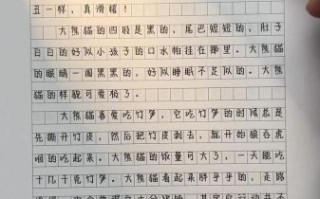 丑一样，真滑稽！
大熊猫的四肢是黑的，尾巴短短的，肚子
白白的好似小孩子的口水帕挂在哪里。大熊猫
的眼睛一圈黑黑的，好似睡眠不足似的。大熊
猫的样貌可爱极了。
大熊猫喜爱吃竹笋，它吃竹笋的时候总是
先撕开竹皮，然后把竹皮剥去，就开始狼吞虎
咽的吃起来。大熊猫的饭量可大了，一天能吃
十几千克竹笋。大熊猫看起来胖乎乎的，走路